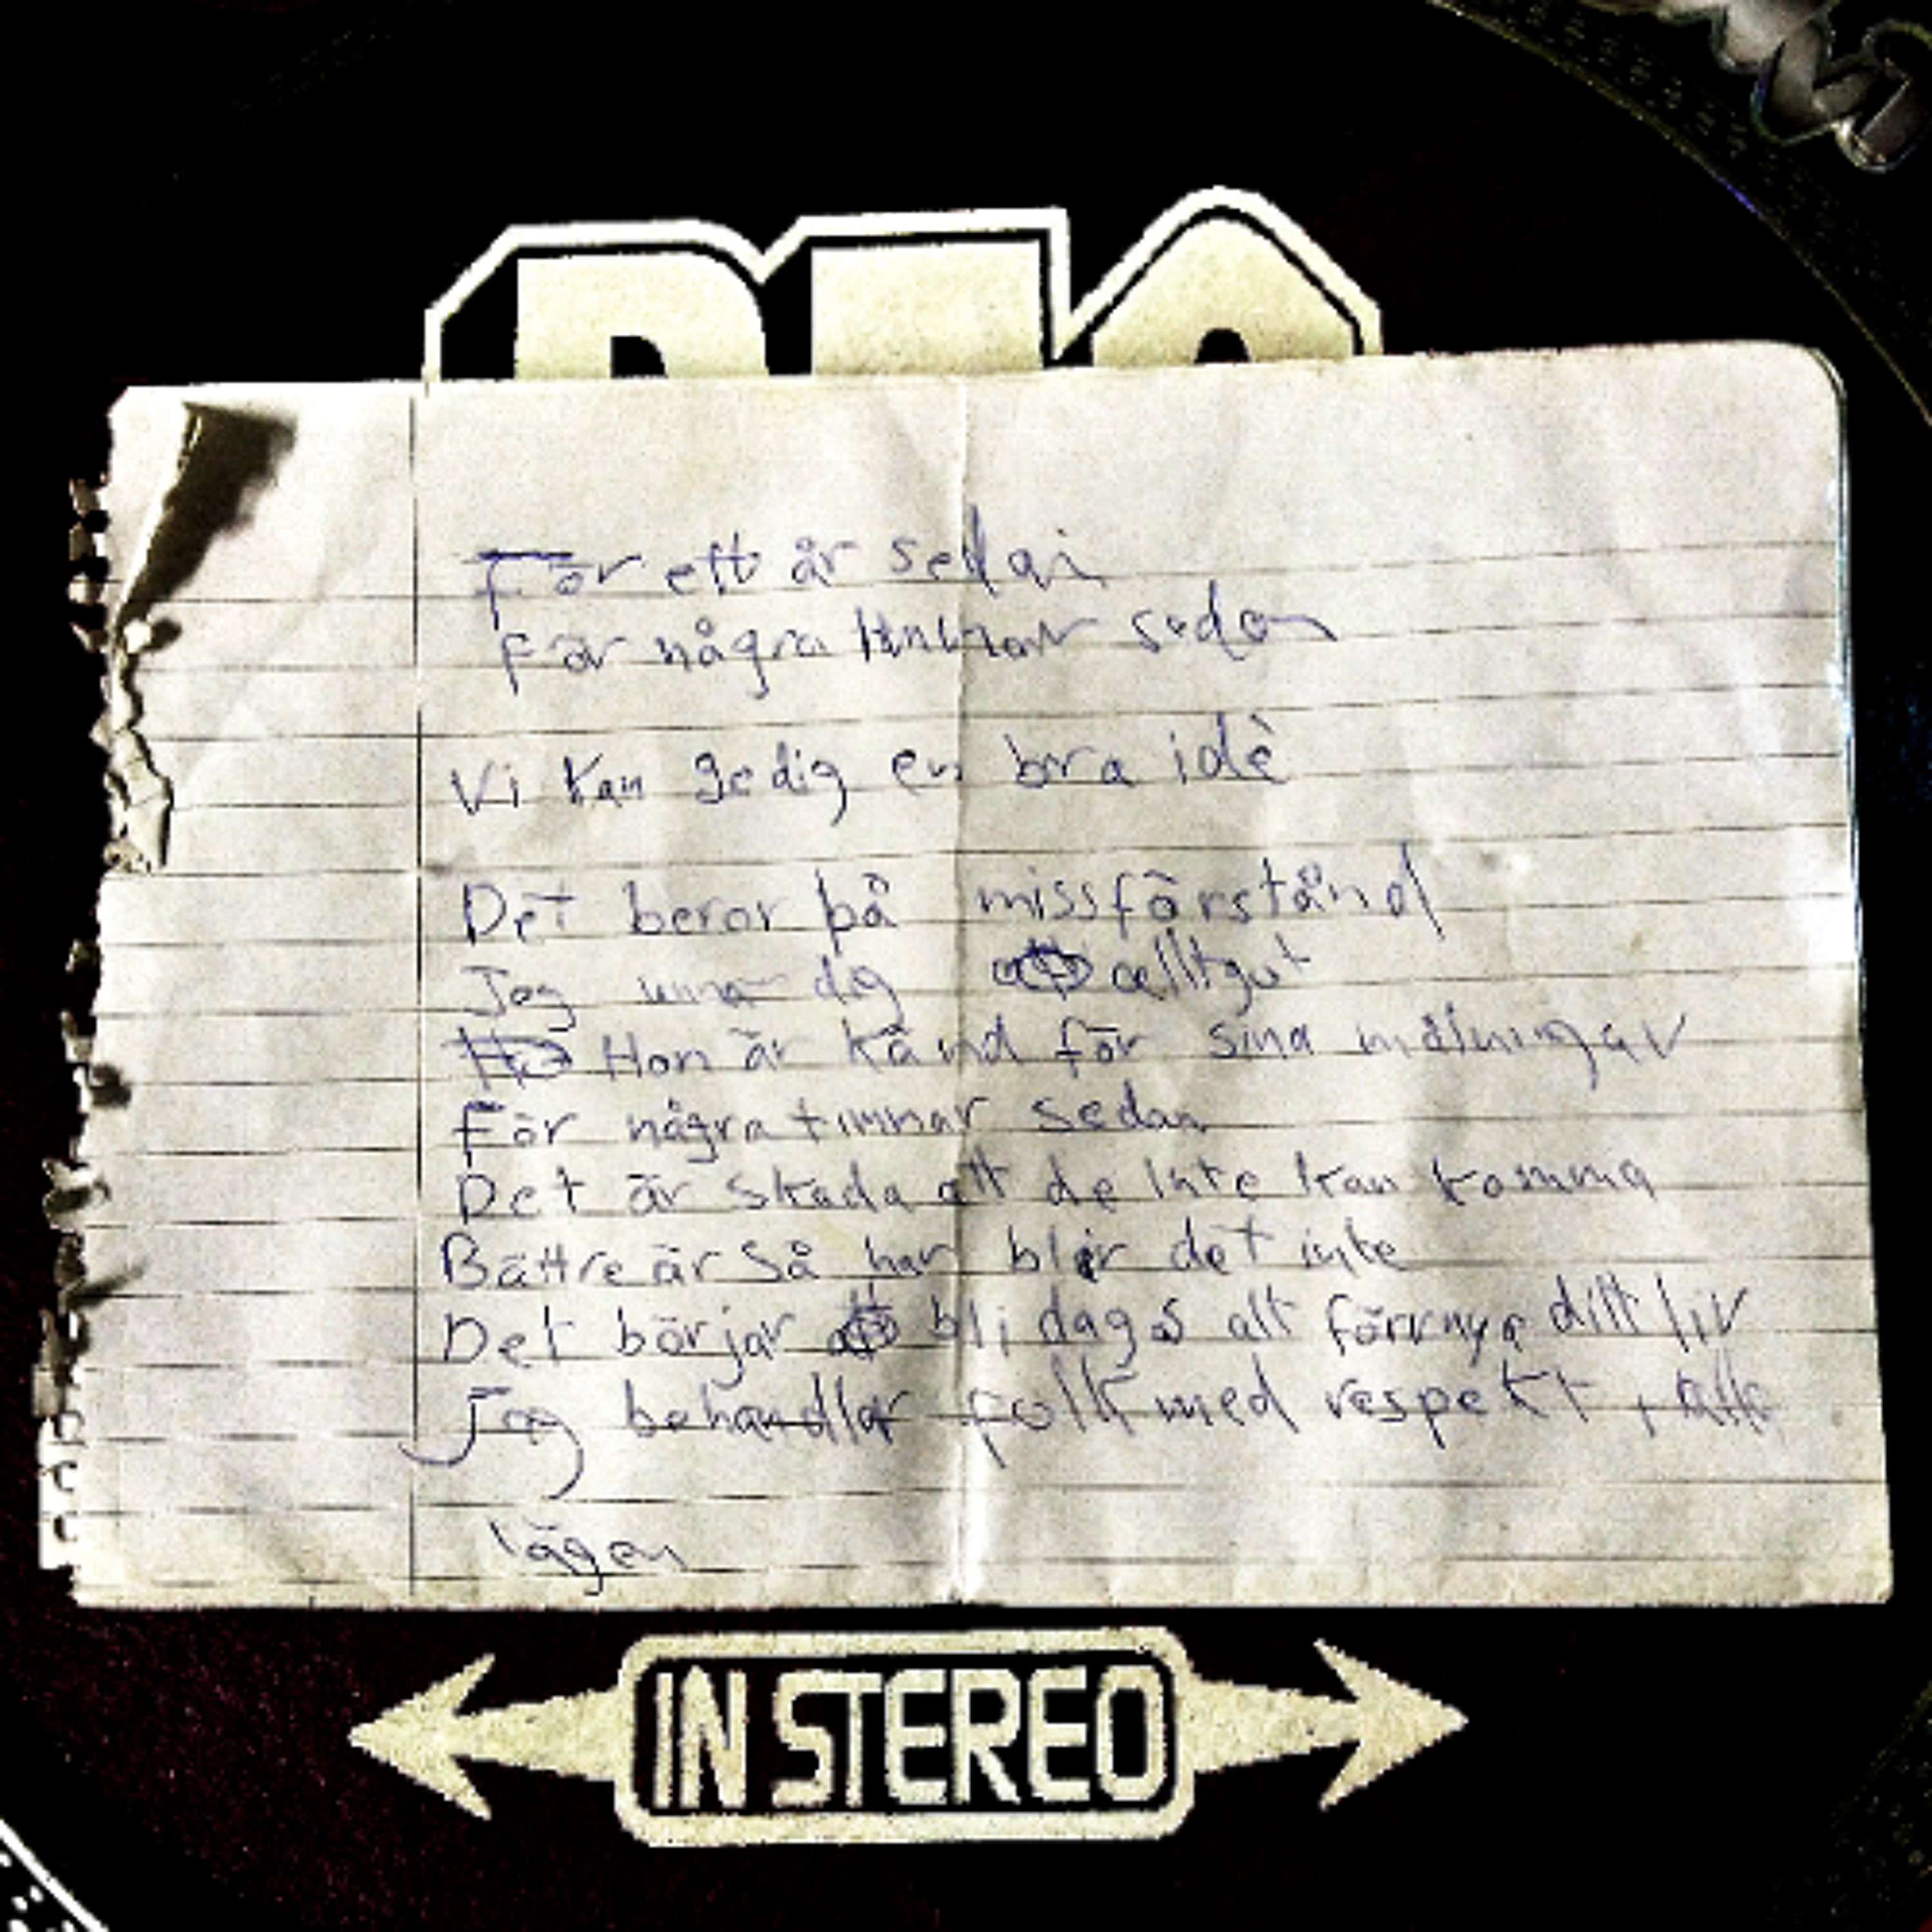 För ett år sedan
För några timmar sedan
Vi kan ge dig en bra idè
Det beror på missförstånd
Jag unnar dig alltgot
Hon är känd för sina målningar
För några timmar sedan
Det är skada att de inte kan komma
Bättre är så har blir det inte
Det börjar bli dags att förnya ditt liv
Jag behandlar folk med respekt i alla
lägen
IN STEREO